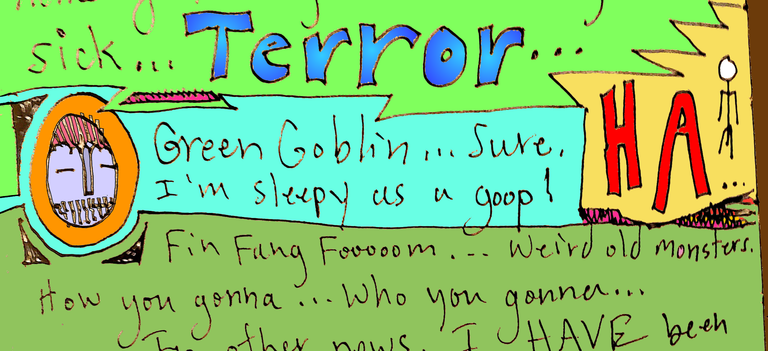 sick... Terror...
Green Goblin... Sure.
I'm sleepy as a goop!
HA...
Fin Fang Fooooom... Weird old monsters.
How you gonna... Who you gonna...
In other news, I HAVE been